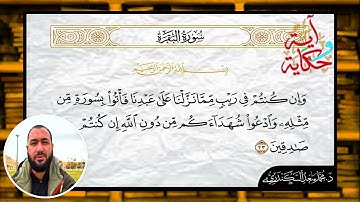 سُورَةُ البَقَرَةِ
آية
و
حكاية
بِسْمِ اللَّهِ الرَّحْمَٰنِ الرَّحِيمِ
وَإِن كُنتُمْ فِي رَيْبٍ مِّمَّا نَزَّلْنَا عَلَىٰ عَبْدِنَا فَأْتُوا۟ بِسُورَةٍ مِّن
مِّثْلِهِۦ وَٱدْعُوا۟ شُهَدَآءَكُم مِّن دُونِ ٱللَّهِ إِن كُنتُمْ
صَـٰدِقِينَ ٢٣
د. محمد سعد